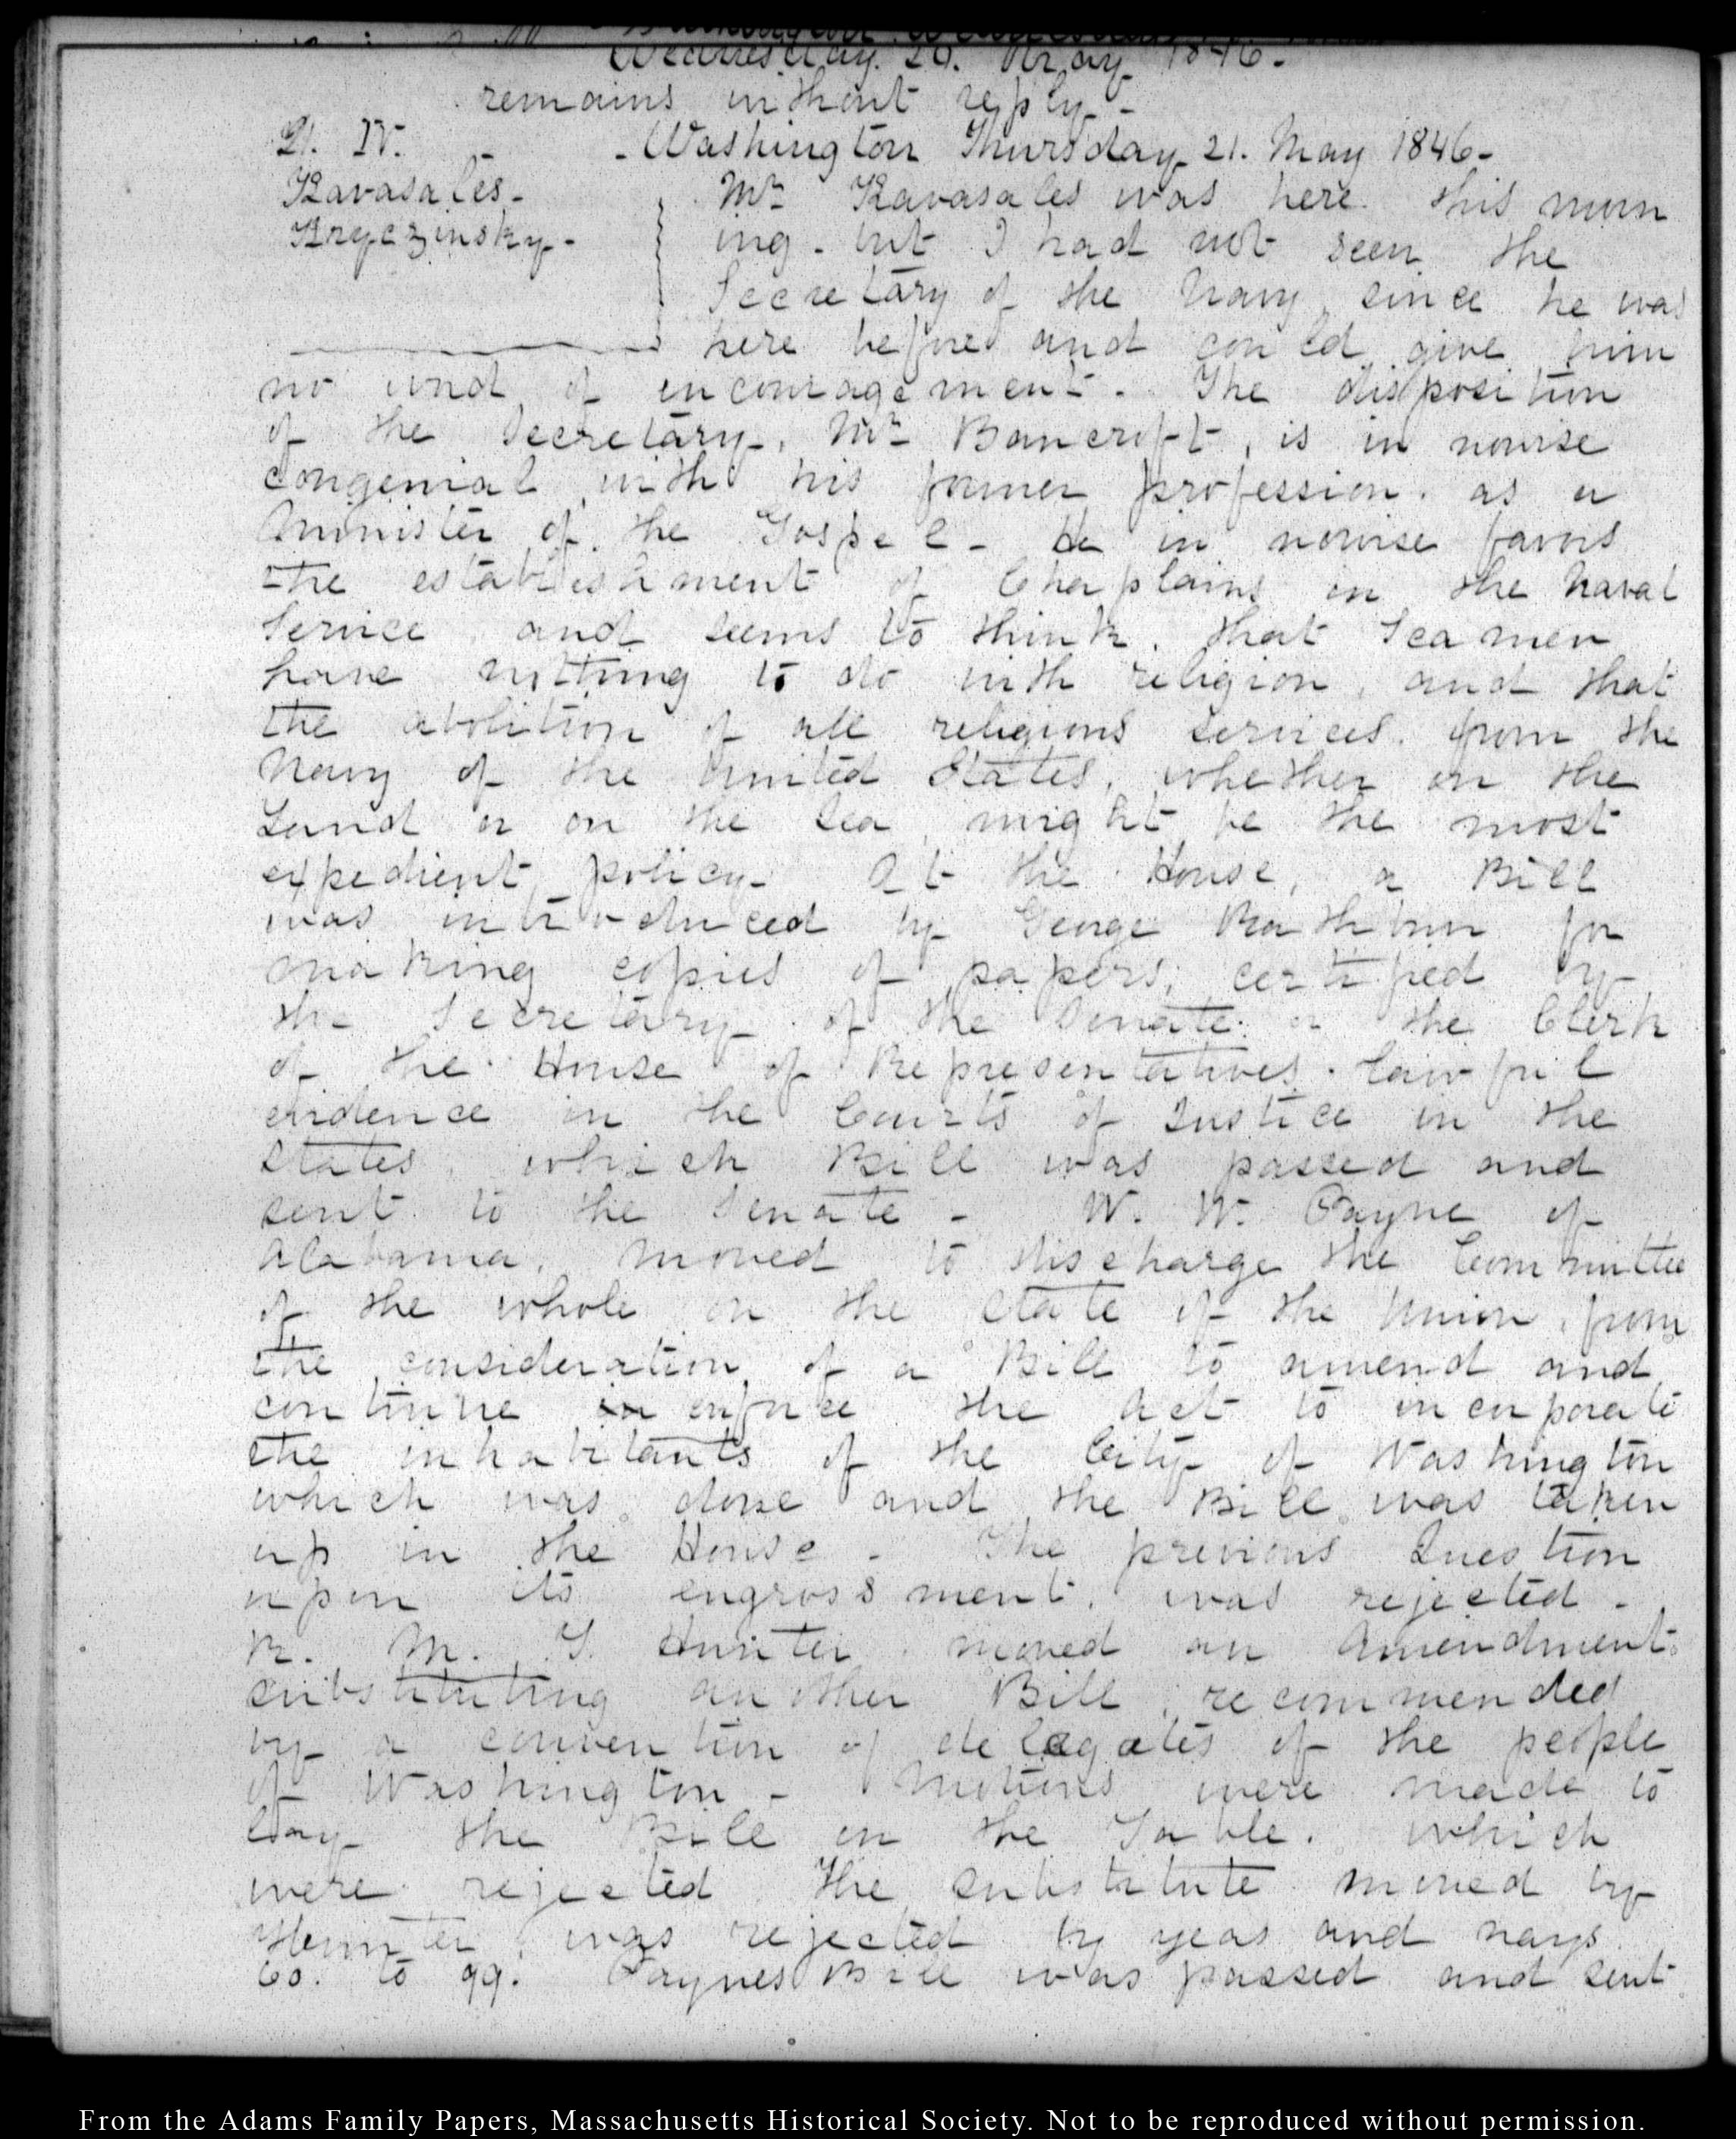 Wednesday. 20. May 1846-
remains without reply-
21. IV. - - Washington Thursday 21. May 1846-
Kavasales- Mr Kavasales was here this morn
Kryczinsky- ing- but I had not seen the
Secretary of the Navy since he was
here before and could give him
no word of encouragement- The disposition
of the Secretary, Mr Bancroft, is in nowise
congenial with his former profession. as a
Minister of the Gospel- He in nowise favors
the establishment of Chaplains in the Naval
Service and seems to think, that Seamen
have nothing to do with religion, and that
the abolition of all religious services from the
Navy of the United States, whether on the
Land or on the Sea, might be the most
expedient policy- At the House, a Bill
was introduced by George Rathbun for
making copies of papers, certified by
the Secretary of the Senate or the Clerk
of the House of Representatives. lawful
evidence in the Courts of Justice in the
States, which Bill was passed and
sent to the Senate- W. W. Payne of
Alabama, moved to discharge the Committee
of the whole on the State of the Union, from
the consideration of a Bill to amend and
continue in enforce the Act to incorporate
the inhabitants of the City of Washington
which was done and the Bill was taken
up in the House- The previous Question
upon its engrossment, was rejected-
R. M. T. Hunter moved an amendment
substituting another Bill, recommended
by a convention of delegates of the people
of Washington- Motions were made to
lay the Bill on the Table. which
were rejected The substitute moved by
Hunter, was rejected by yeas and nays
60. to 99. Paynes Bill was passed and sent
From the Adams Family Papers, Massachusetts Historical Society. Not to be reproduced without permission.